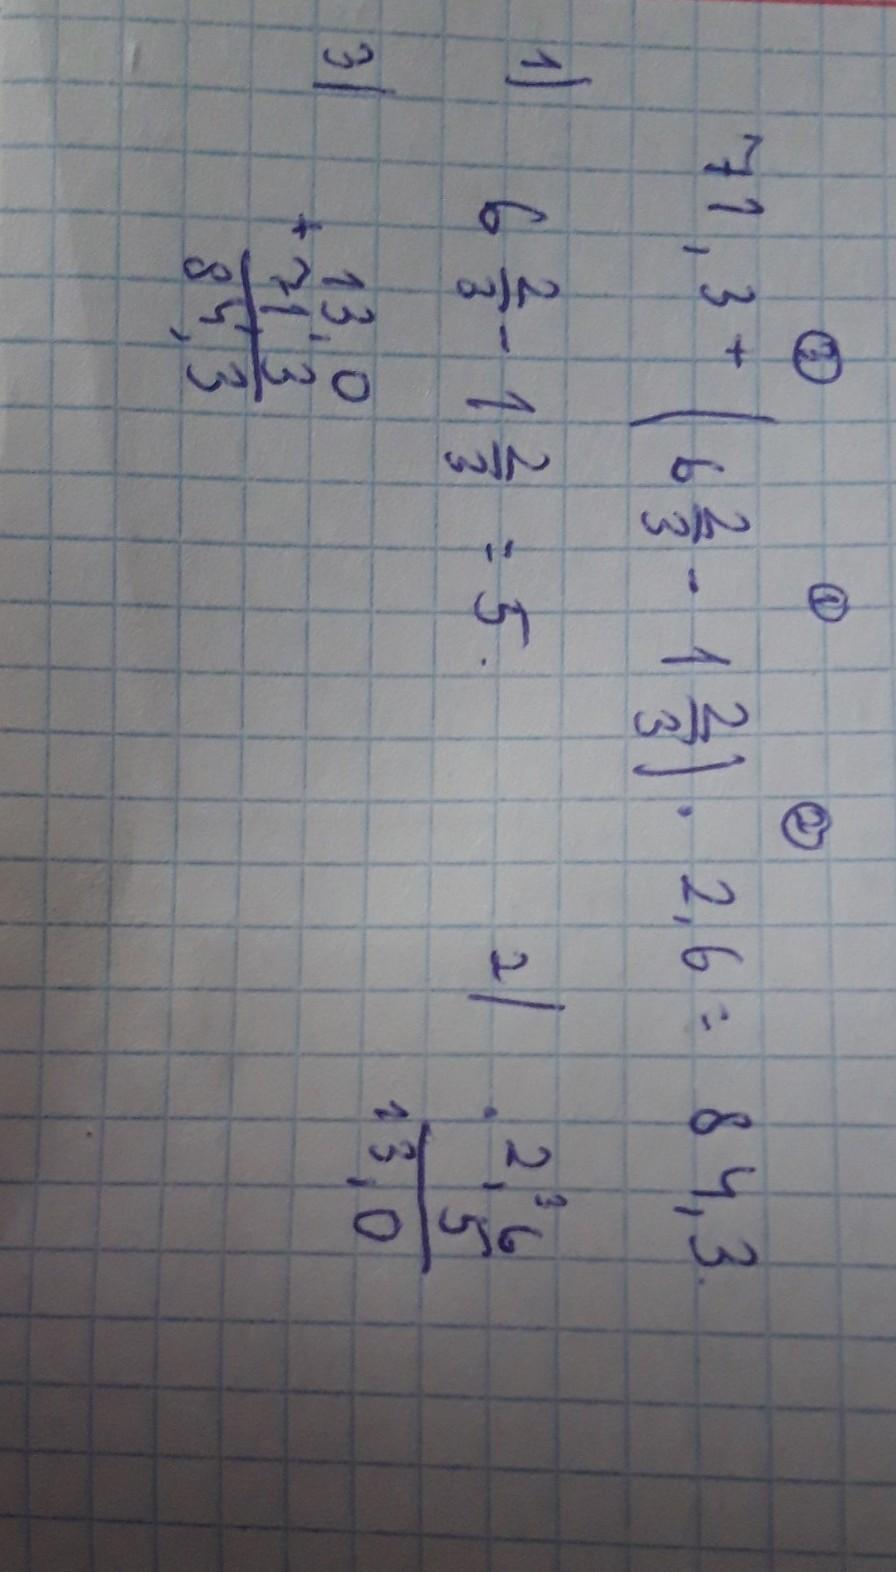 ③ ① ②
71,3 + (6 2/3 - 1 2/3) · 2,6 = 84,3.
1) 6 2/3 - 1 2/3 = 5.
2) 2,6
3
· 5
13,0
3) 13,0
+ 71,3
84,3